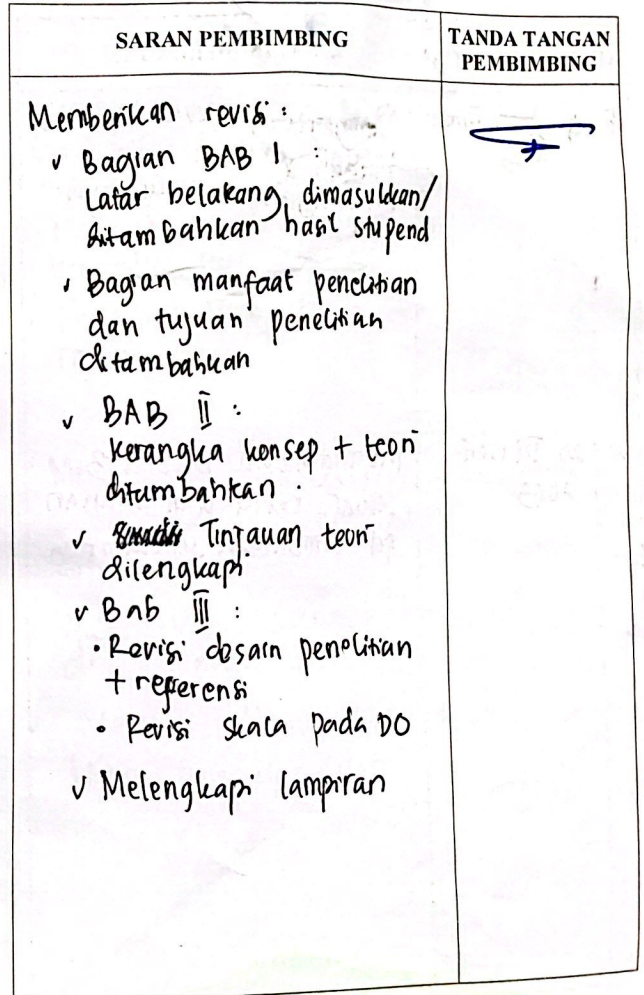 SARAN PEMBIMBING
TANDA TANGAN
PEMBIMBING
Memberikan revisi :
v Bagian BAB 1 :
Latar belakang dimasukkan/
ditambahkan hasil stupend
v Bagian manfaat penelitian
dan tujuan penelitian
ditambahkan
v BAB II :
kerangka konsep + teori
ditambahkan .
v Tinjauan teori
dilengkapi
v Bab III :
• Revisi desain penelitian
+ referensi
• Revisi skala pada DO
v Melengkapi lampiran